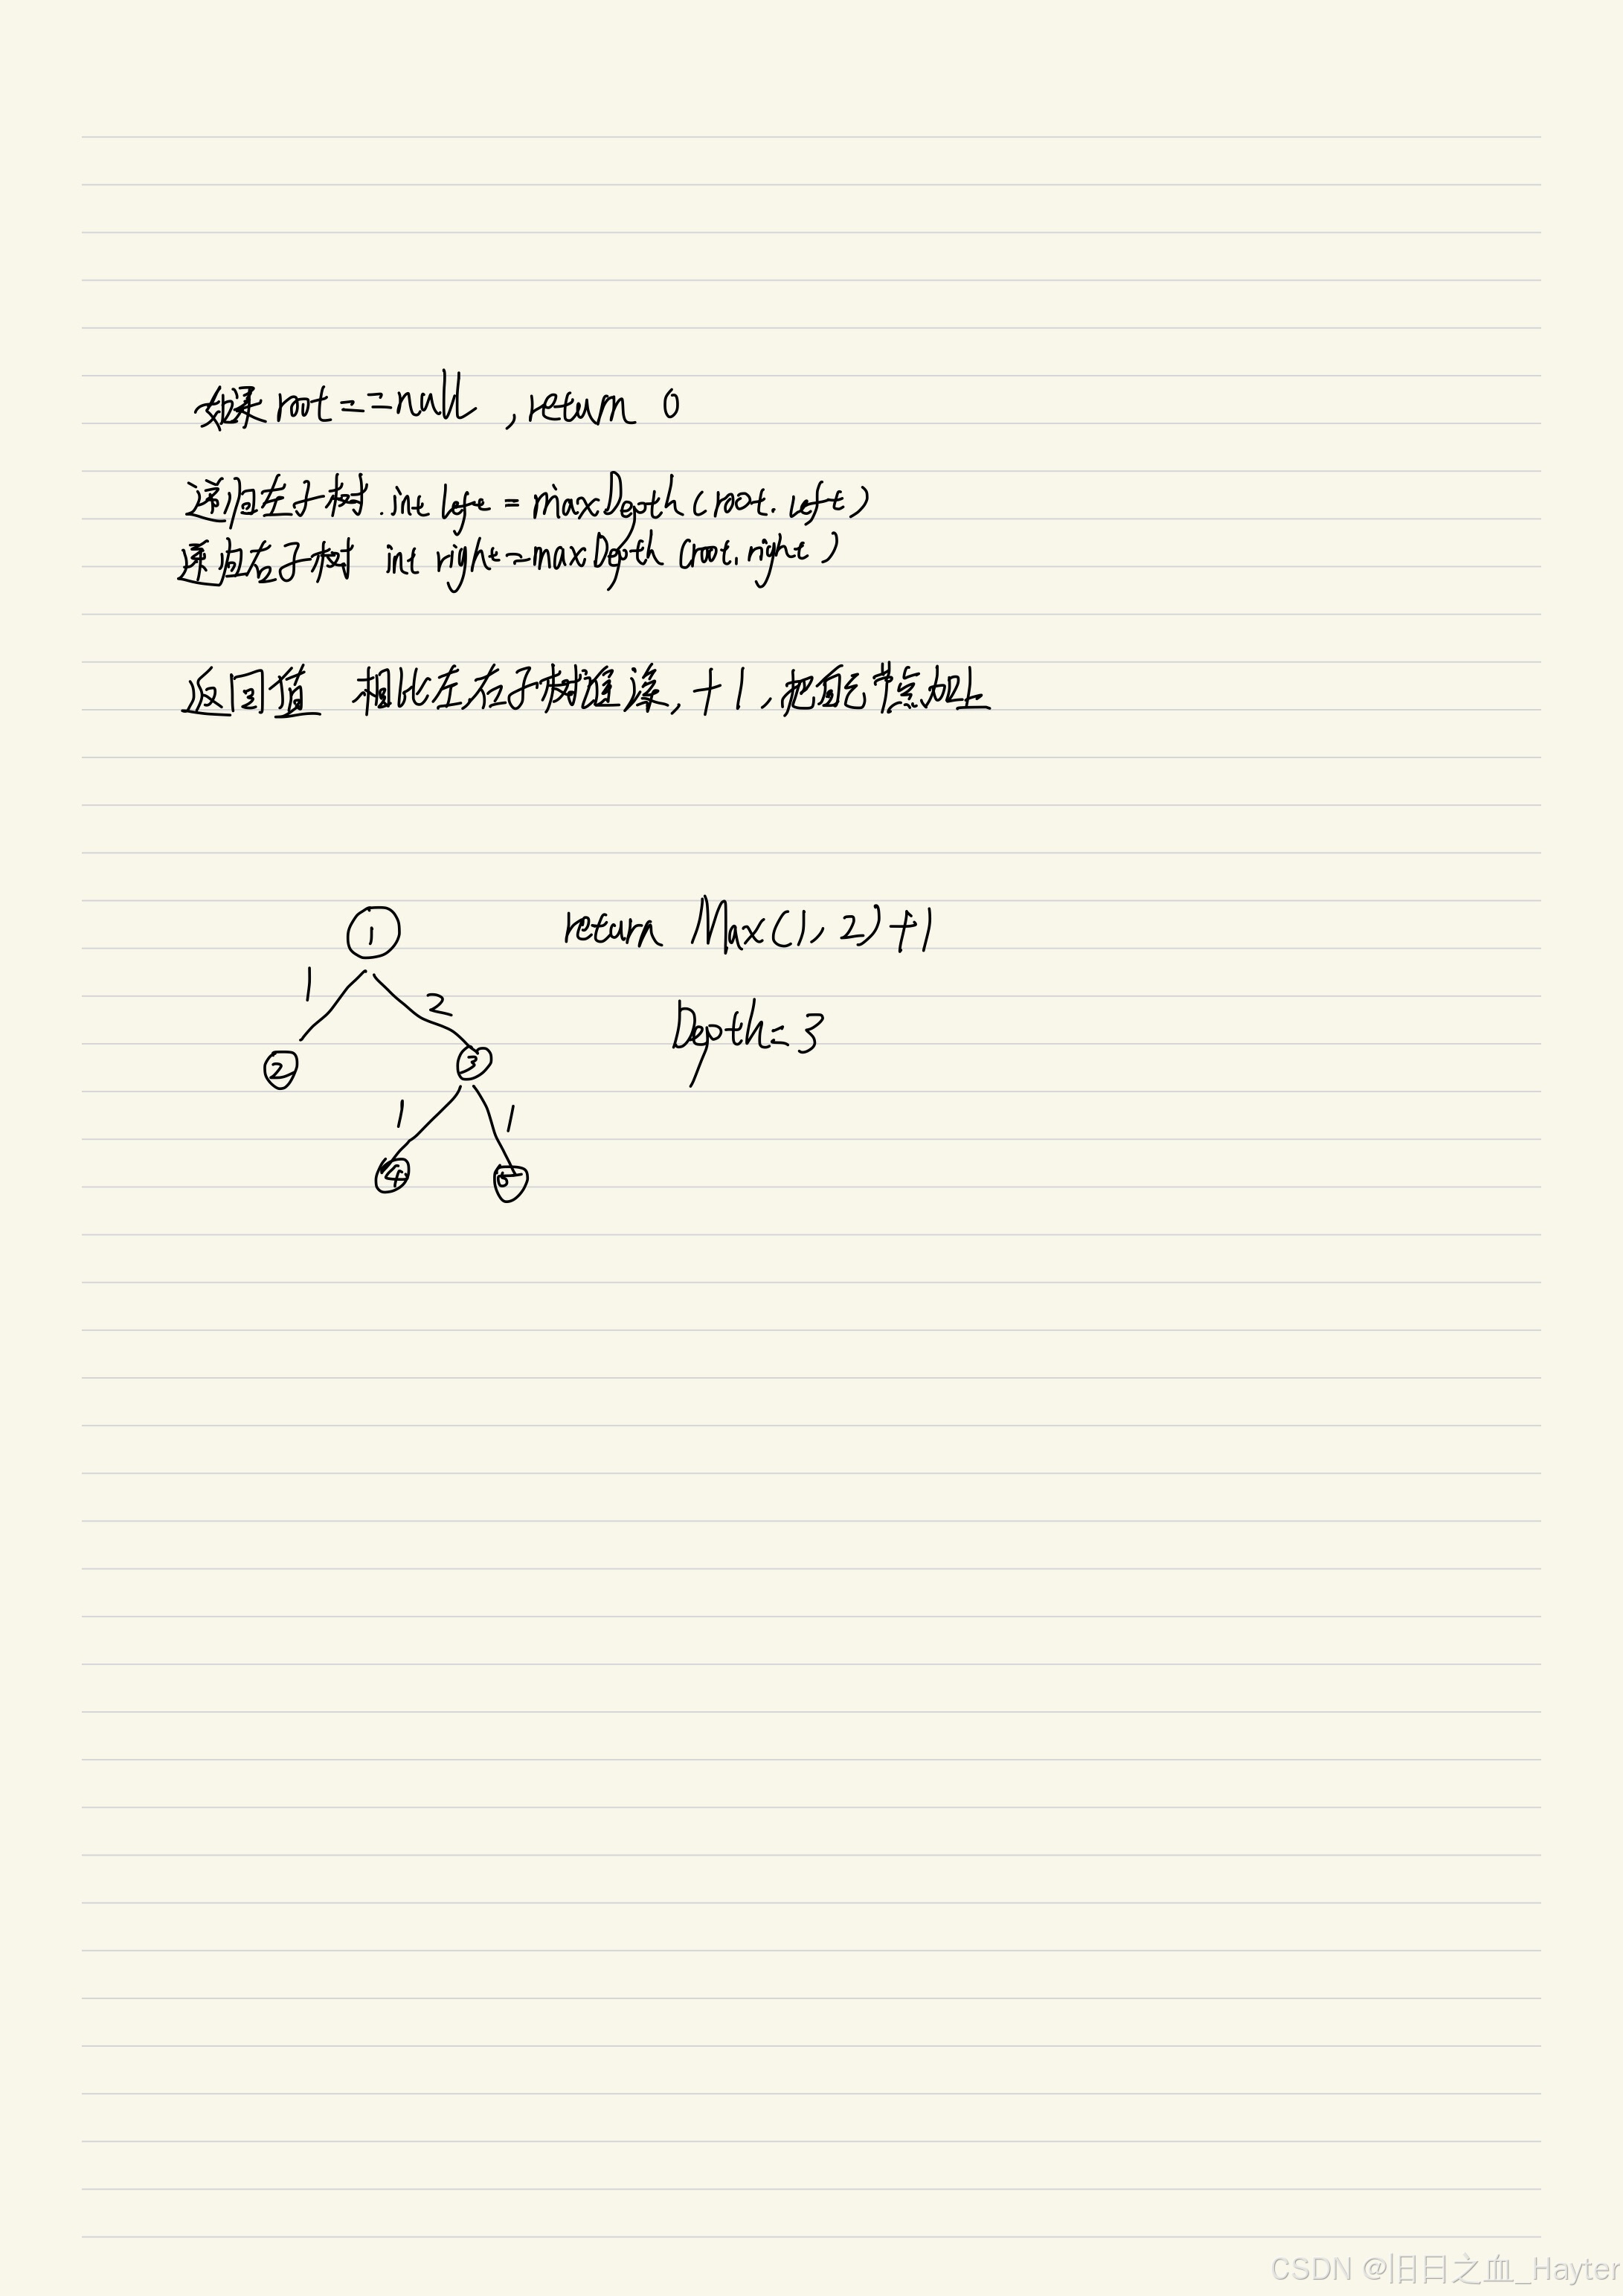 如果root==null ,return 0
递归左子树.int left = maxDepth(root.left)
递归右子树 int right=maxDepth(root.right)
返回值 相比左右子树谁深,+1,把自己节点加上
1 return Max(1,2)+1
1 2
Depth=3
2 3
1 1
4 5
CSDN @旧日之血_Hayter